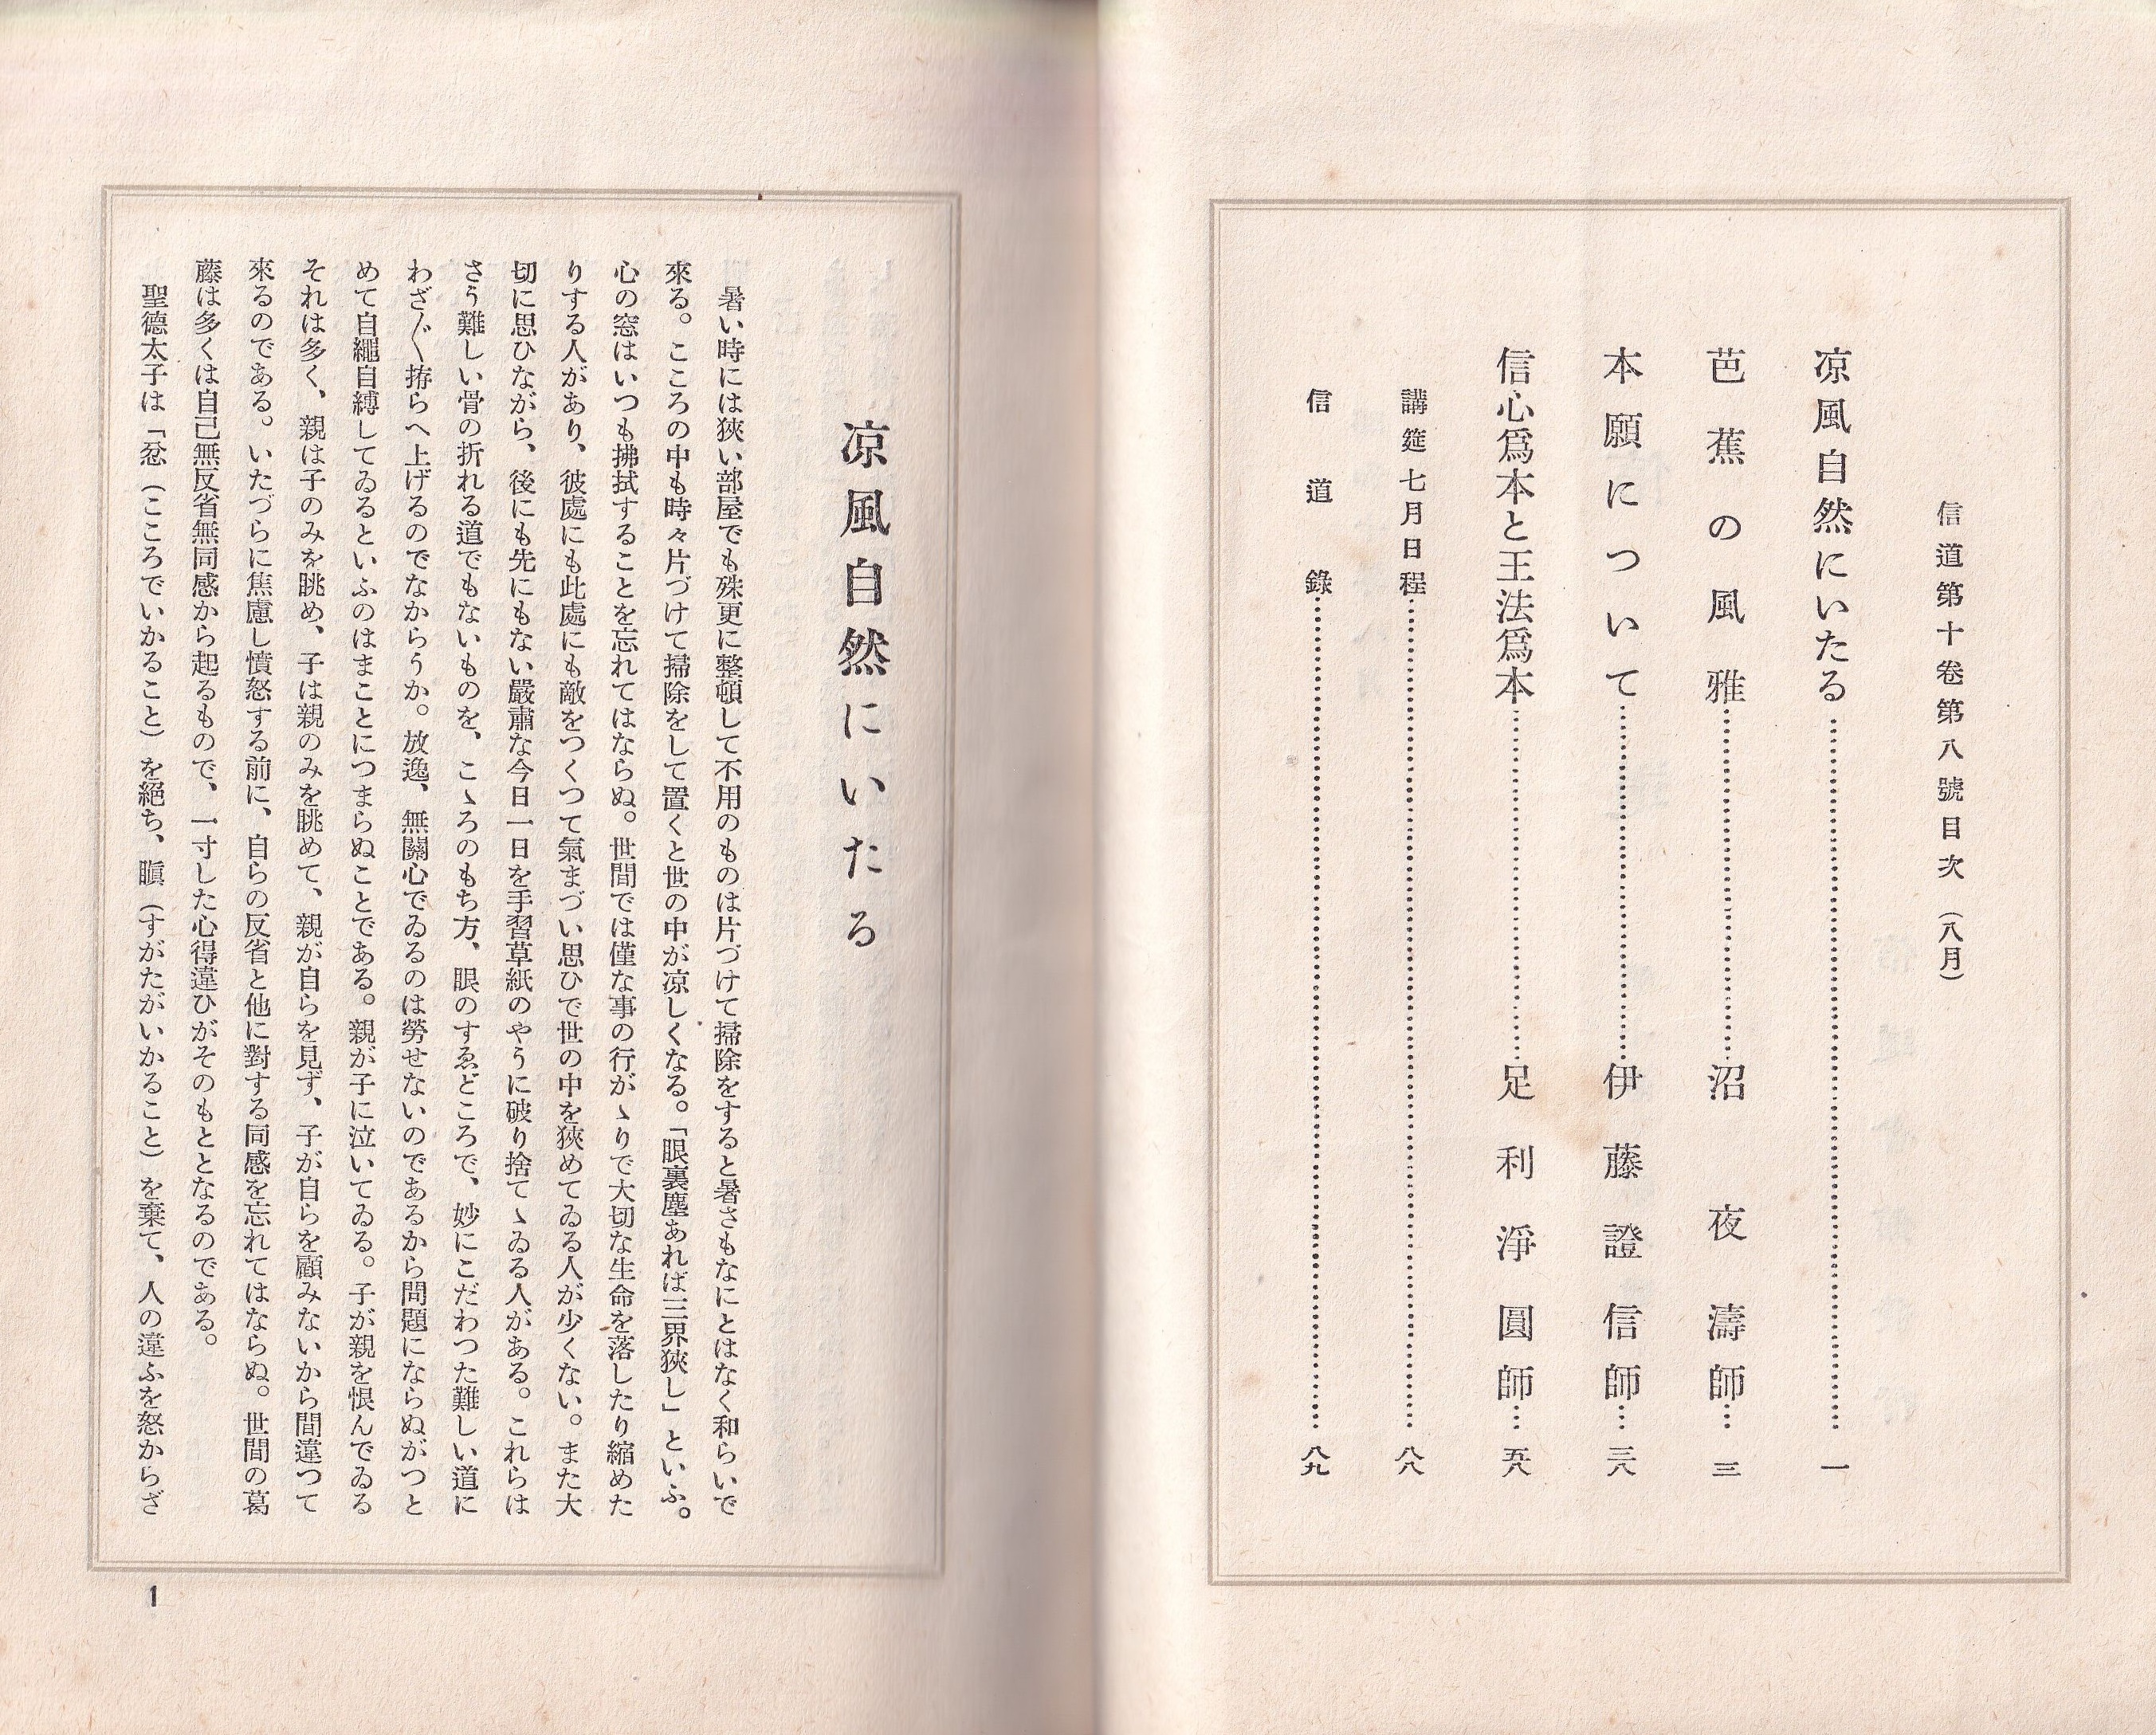 信道第十卷第八號目次（八月）
凉風自然にいたる……一
芭蕉の風雅……沼夜濤師……三
本願について……伊藤證信師……三八
信心爲本と王法爲本……足利淨圓師……五八
講筵七月日程……八八
信道錄……八九
凉風自然にいたる
暑い時には狹い部屋でも殊更に整頓して不用のものは片づけて掃除をすると暑さもなにとはなく和らいで
來る。こころの中も時々片づけて掃除をして置くと世の中が凉しくなる。「眼裏塵あれば三界狹し」といふ。
心の窓はいつも拂拭することを忘れてはならぬ。世間では僅な事の行がゝりで大切な生命を落したり縮めた
りする人があり、彼處にも此處にも敵をつくつて氣まづい思ひで世の中を狹めてゐる人が少くない。また大
切に思ひながら、後にも先にもない嚴肅な今日一日を手習草紙のやうに破り捨てゝゐる人がある。これらは
さう難しい骨の折れる道でもないものを、こゝろのもち方、眼のすゑどころで、妙にこだわつた難しい道に
わざ〴〵拵らへ上げるのでなからうか。放逸、無關心でゐるのは勞せないのであるから問題にならぬがつと
めて自繩自縛してゐるといふのはまことにつまらぬことである。親が子に泣いてゐる。子が親を恨んでゐる
それは多く、親は子のみを眺め、子は親のみを眺めて、親が自らを見ず、子が自らを顧みないから間違つて
來るのである。いたづらに焦慮し憤怒する前に、自らの反省と他に對する同感を忘れてはならぬ。世間の葛
藤は多くは自己無反省無同感から起るもので、一寸した心得違ひがそのもととなるのである。
聖德太子は「忿（こころでいかること）を絕ち、瞋（すがたがいかること）を棄て、人の違ふを怒からざ
1